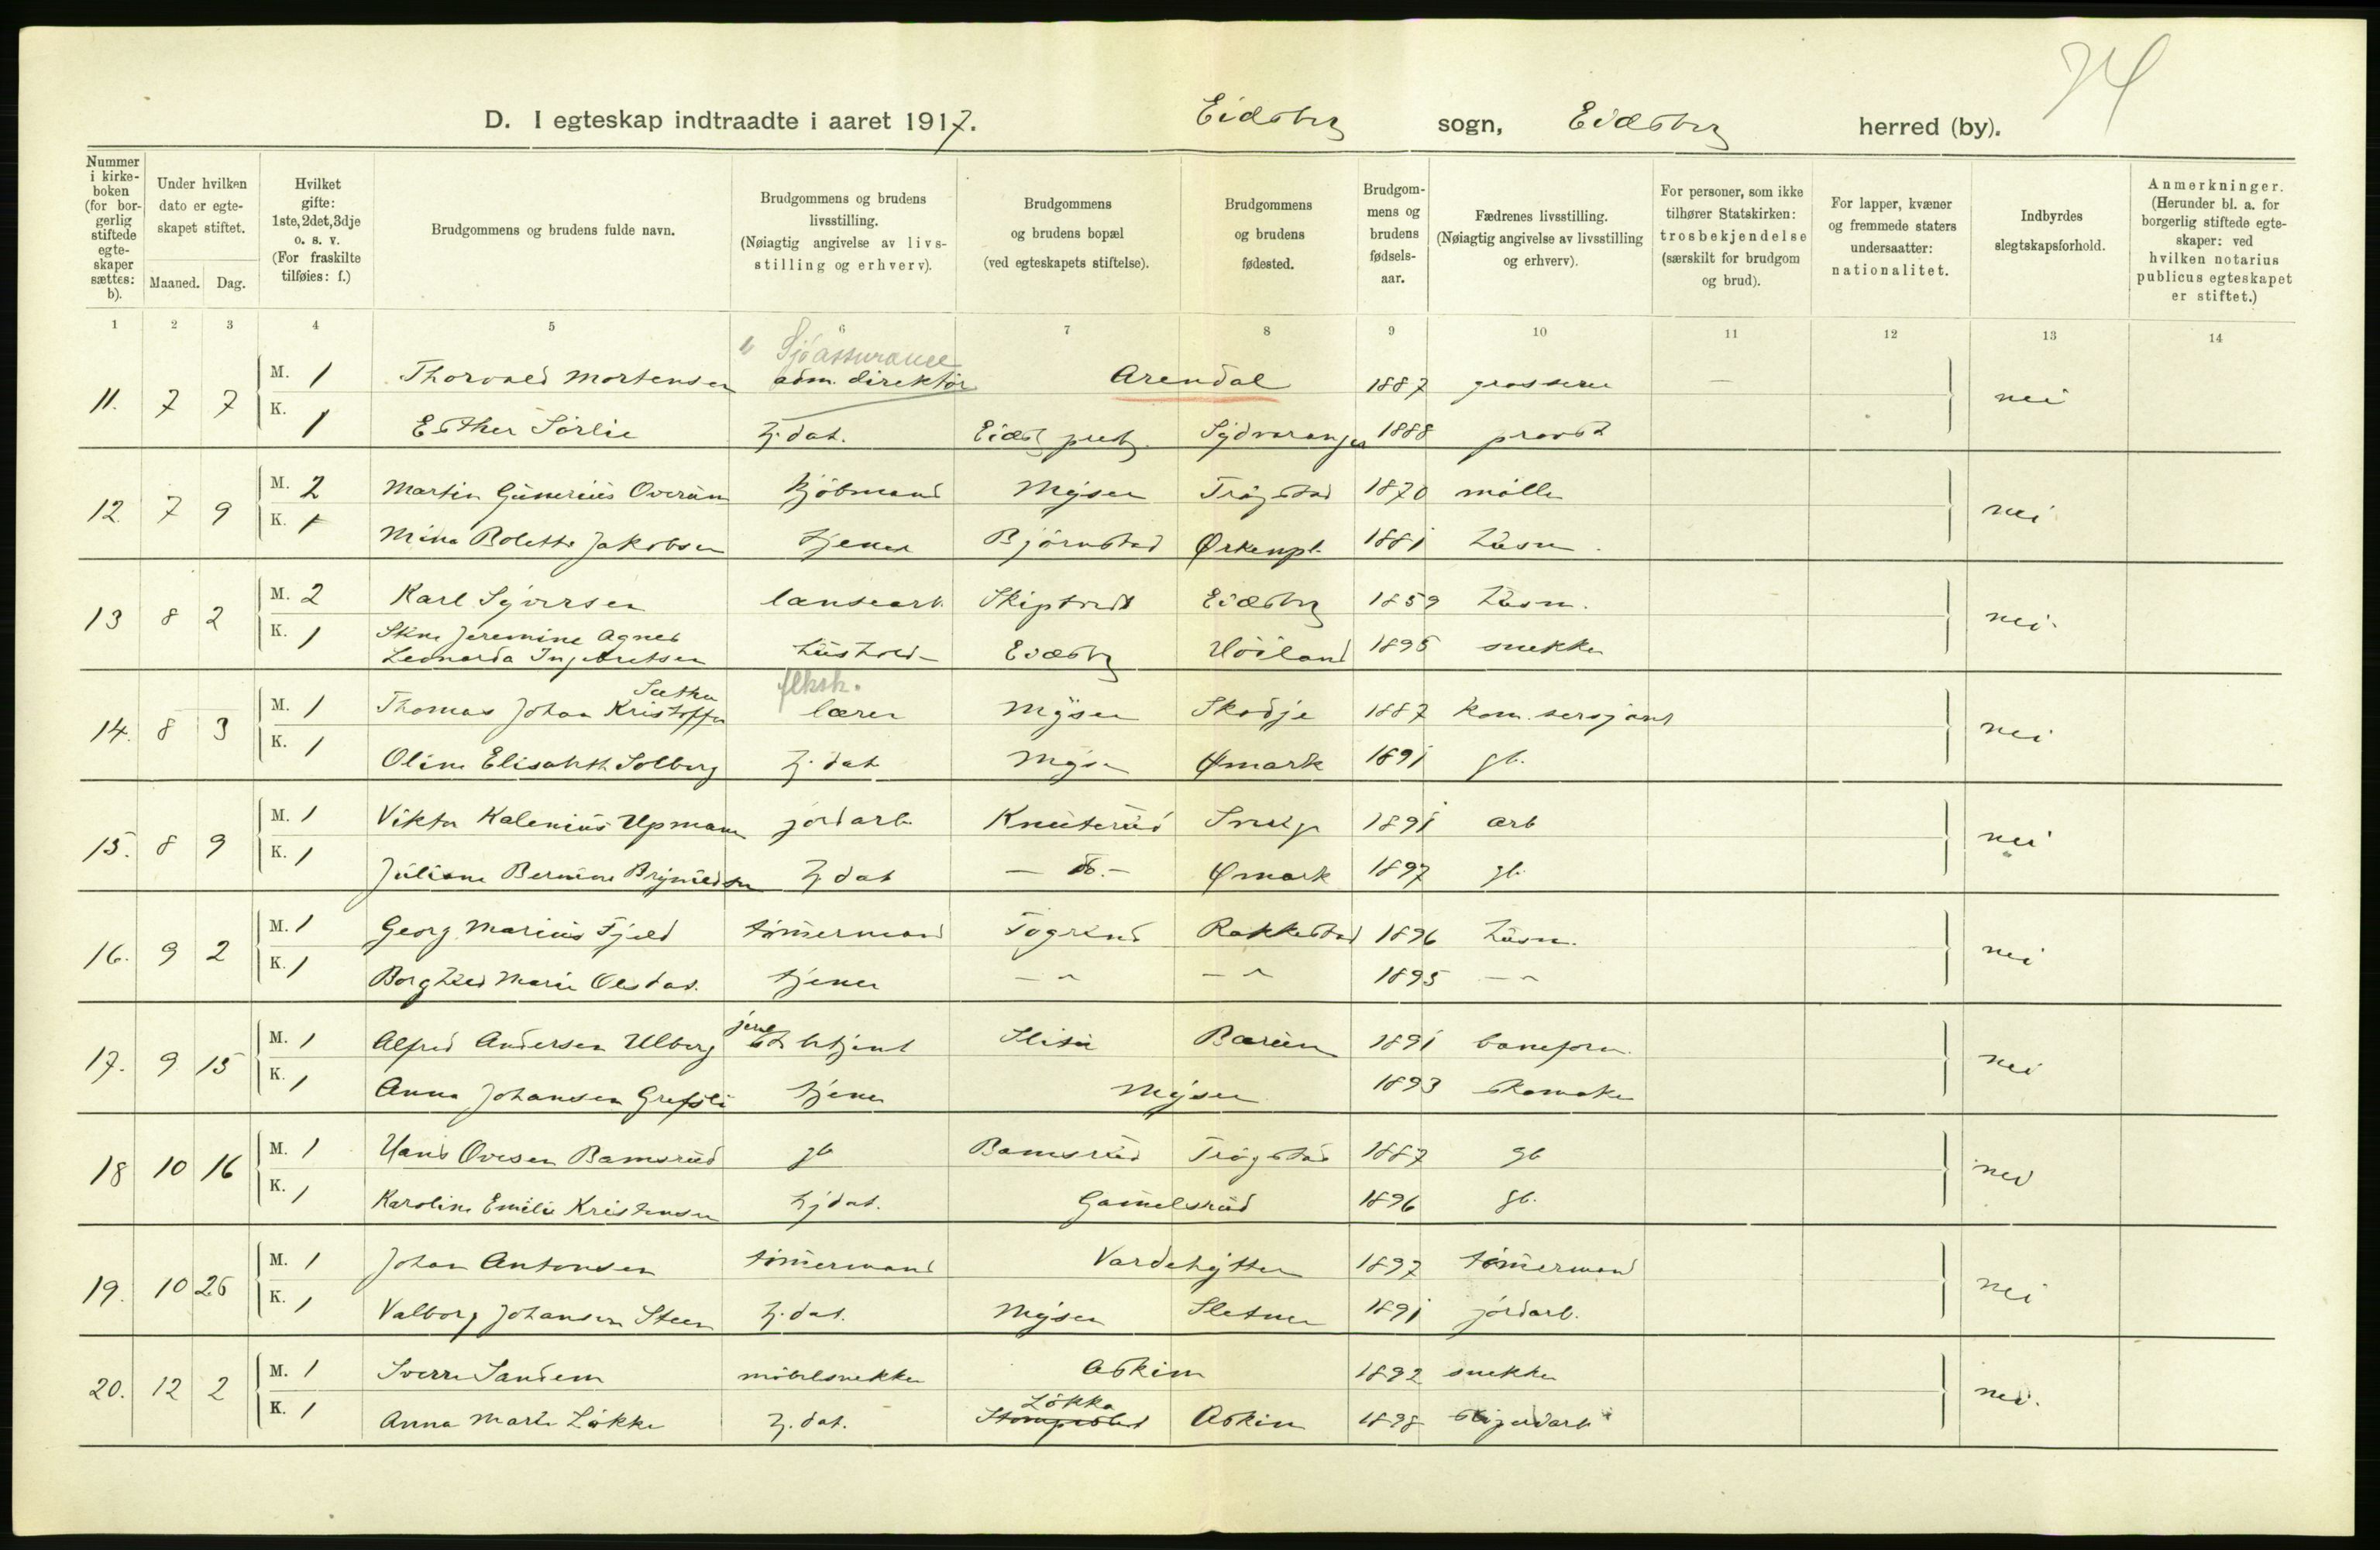 74
D. I egteskap indtraadte i aaret 1917. Eidsberg sogn, Eidsberg herred (by).
Nummer i kirke-boken (for bor-gerlig stiftede egte-skaper sættes: b). Under hvilken dato er egte-skapet stiftet. Maaned. Dag. Hvilket gifte: 1ste, 2det, 3dje o. s. v. (For fraskilte tilføies: f.) Brudgommens og brudens fulde navn. Brudgommens og brudens livsstilling. (Nøiagtig angivelse av livs-stilling og erhverv). Brudgommens og brudens bopæl (ved egteskapets stiftelse). Brudgommens og brudens fødested. Brudgom-mens og brudens fødsels-aar. Fædrenes livsstilling. (Nøiagtig angivelse av livsstilling og erhverv). For personer, som ikke tilhører Statskirken: trosbekjendelse (særskilt for brudgom og brud). For lapper, kvæner og fremmede staters undersaatter: nationalitet. Indbyrdes slegtskapsforhold. Anmerkninger. (Herunder bl. a. for borgerlig stiftede egte-skaper: ved hvilken notarius publicus egteskapet er stiftet.)
1 2 3 4 5 6 7 8 9 10 11 12 13 14
Sjöassurance
11. 7 7 M. 1 Thorvald Mortensen adm. direktör Arendal 1887 grosserer — nei
K. 1 Esther Sörlie hj. dat. Eidsb. prestg. Sydvaranger 1888 provst
12. 7 9 M. 2 Martin Gunerius Overum kjöbmand Mysen Trögstad 1870 möller nei
K. 1 Mina Bolette Jakobsen tjener Björnstad Ørkenpl. 1881 husm.
13 8 2 M. 2 Karl Syversen landearb. Eidsberg 1859 husm. nei
K. 1 Stine Jeremine Agnes
Leonarda Ingebretsen hushold. Eidsberg Höiland 1895 snekker
Sæther
14. 8 3 M. 1 Thomas Johan Kristoffer flksk. lærer Mysen Skodje 1887 kom. sersjant nei
K. 1 Oline Elisabeth Solberg hj. dat Mysen Ømark 1891 gb.
15. 8 9 M. 1 Viktor Kalenius Upmann jordarb. Knuterud 1891 arb nei
K. 1 Juliane Bernine Brynildsen hj dat — do. — Ømark 1897 gb.
16. 9 2 M. 1 Georg Marius Fjeld tömmermand Rakkestad 1896 husm. nei
K. 1 Borghild Marie Olsdat. tjener — " — " 1895 — "
17. 9 15 M. 1 Alfred Andersen Ulberg jernb. betjent Slitu Bærum 1891 baneform. nei
K. 1 Anna Johansen Grefsli tjener Mysen 1893 skomaker
18 10 16 M. 1 Hans Ovesen Bamsrud gb Bamsrud Trögstad 1887 gb nei
K. 1 Karoline Emilie Kristensen hj dat. Gamelsrud 1896 gb.
19. 10 26 M. 1 Johan Antonsen tömmermand Vardehytten 1897 tömmermand nei
K. 1 Valborg Johansen Steen hj. dat. Mysen Sletner 1891 jordarb.
20. 12 2 M. 1 Sverre Sandem möbelsnekker Askim 1892 snekker nei.
Løkka
K. 1 Anna Marie Løkke hj. dat. Askim 1898